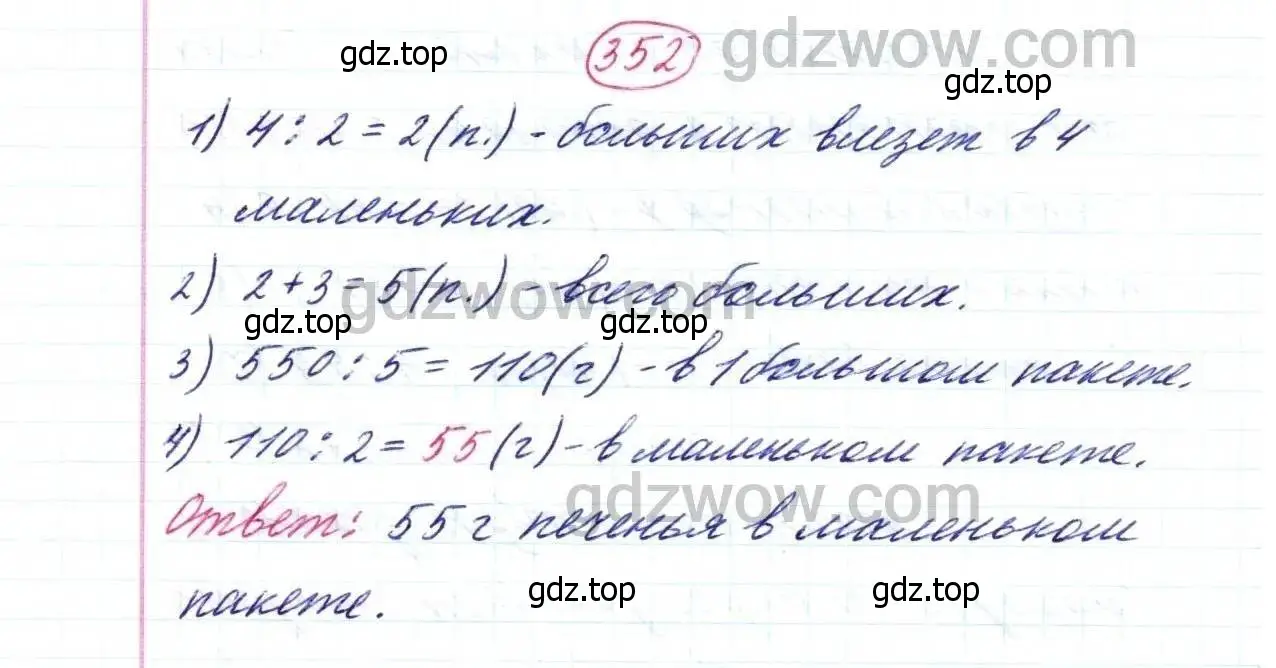 352 gdzwow.com
gdz.top
gdz.top
1) 4 : 2 = 2 (п.) - больших влезет в 4
маленьких.
2) 2 + 3 = 5 (п.) - всего больших.
gdzwow.com
gdz.top gdz.top
3) 550 : 5 = 110 (г) - в 1 большом пакете.
4) 110 : 2 = 55 (г) - в маленьком пакете.
gdzwow.com
Ответ: 55 г печенья в маленьком
пакете.
gdz.top gdz.top